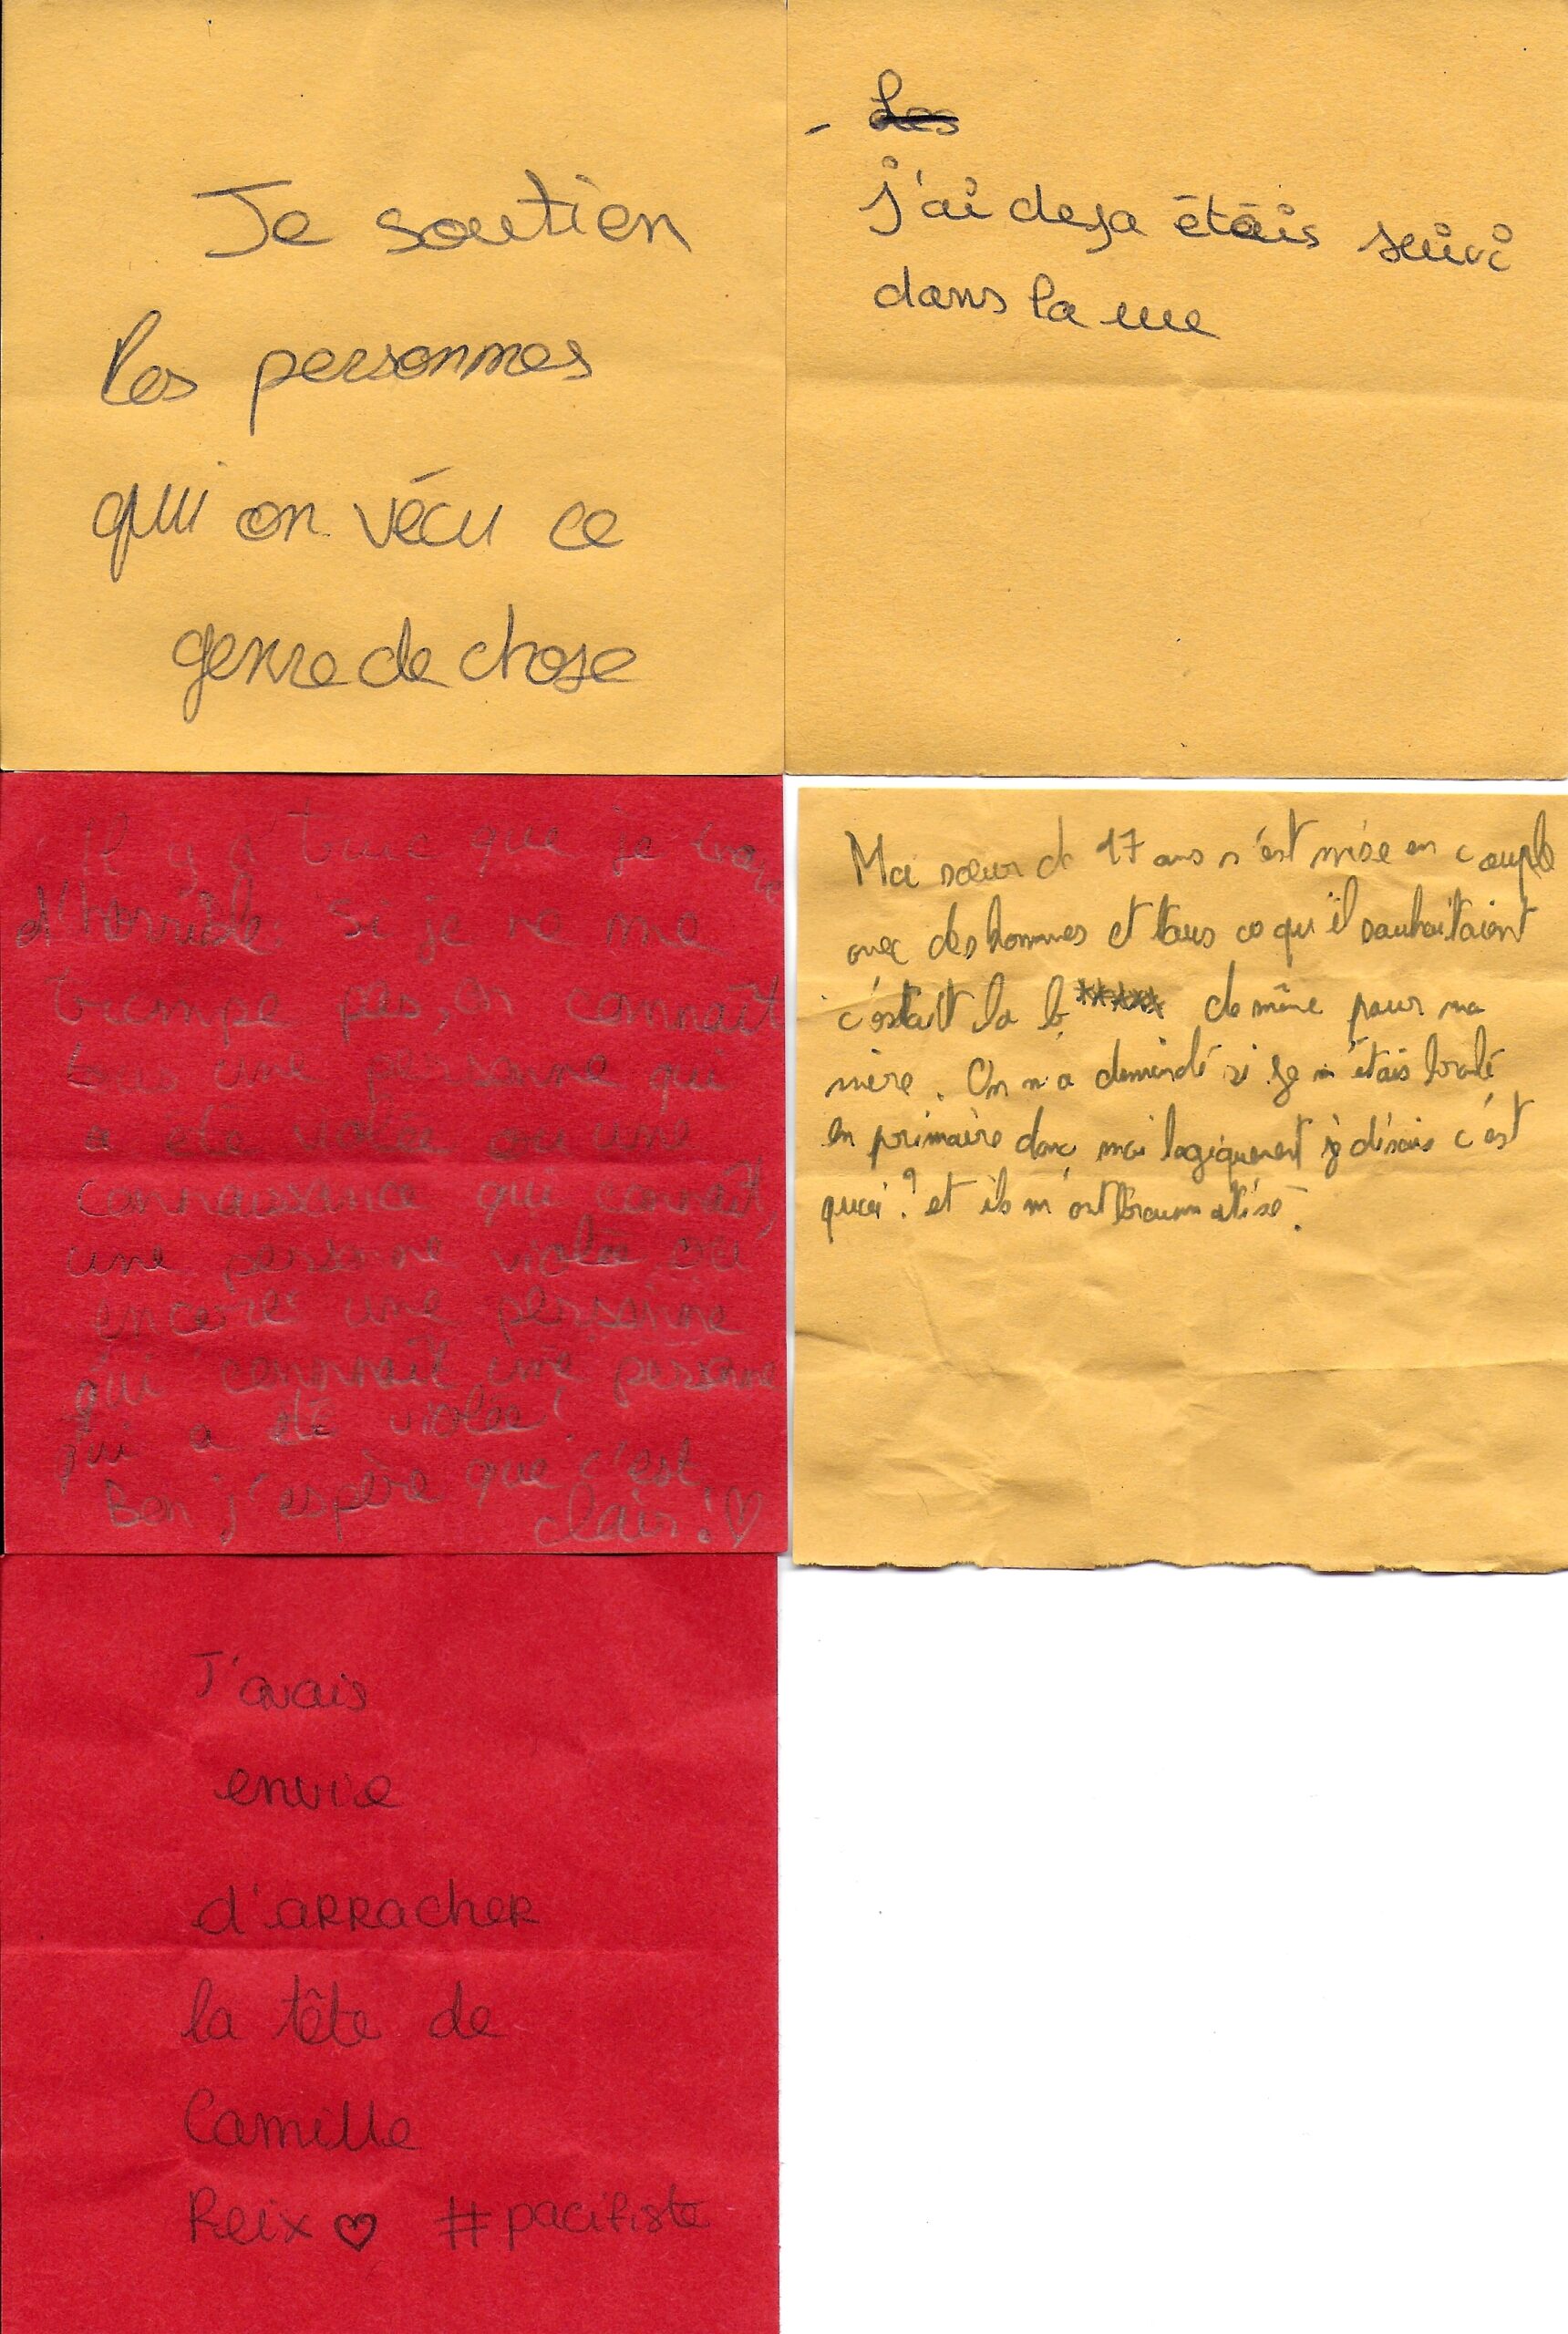 Je soutien
les personnes
qui on vécu ce
genre de chose
- Les
j'ai deja étais suivi
dans la rue
Il y a truc que je trouve
d'horrible: Si je ne me
trompe pas, on connaît
tous une personne qui
a été violée ou une
connaissance qui connaît,
une personne violée ou
encore une personne
qui connaît une personne
qui a été violée!
Bon j'espère que c'est
clair! ♡
Ma sœur de 17 ans s'est mise en couple
avec des hommes et tous ce qu'il souhaitaient
c'était la b***** de même pour ma
mère. On m'a demandé si je m'étais
en primaire donc moi logiquement je disais c'est
quoi? et ils m'ont traumatisé.
J'avais
envie
d'arracher
la tête de
Camille
Reix ♡ #pacifiste